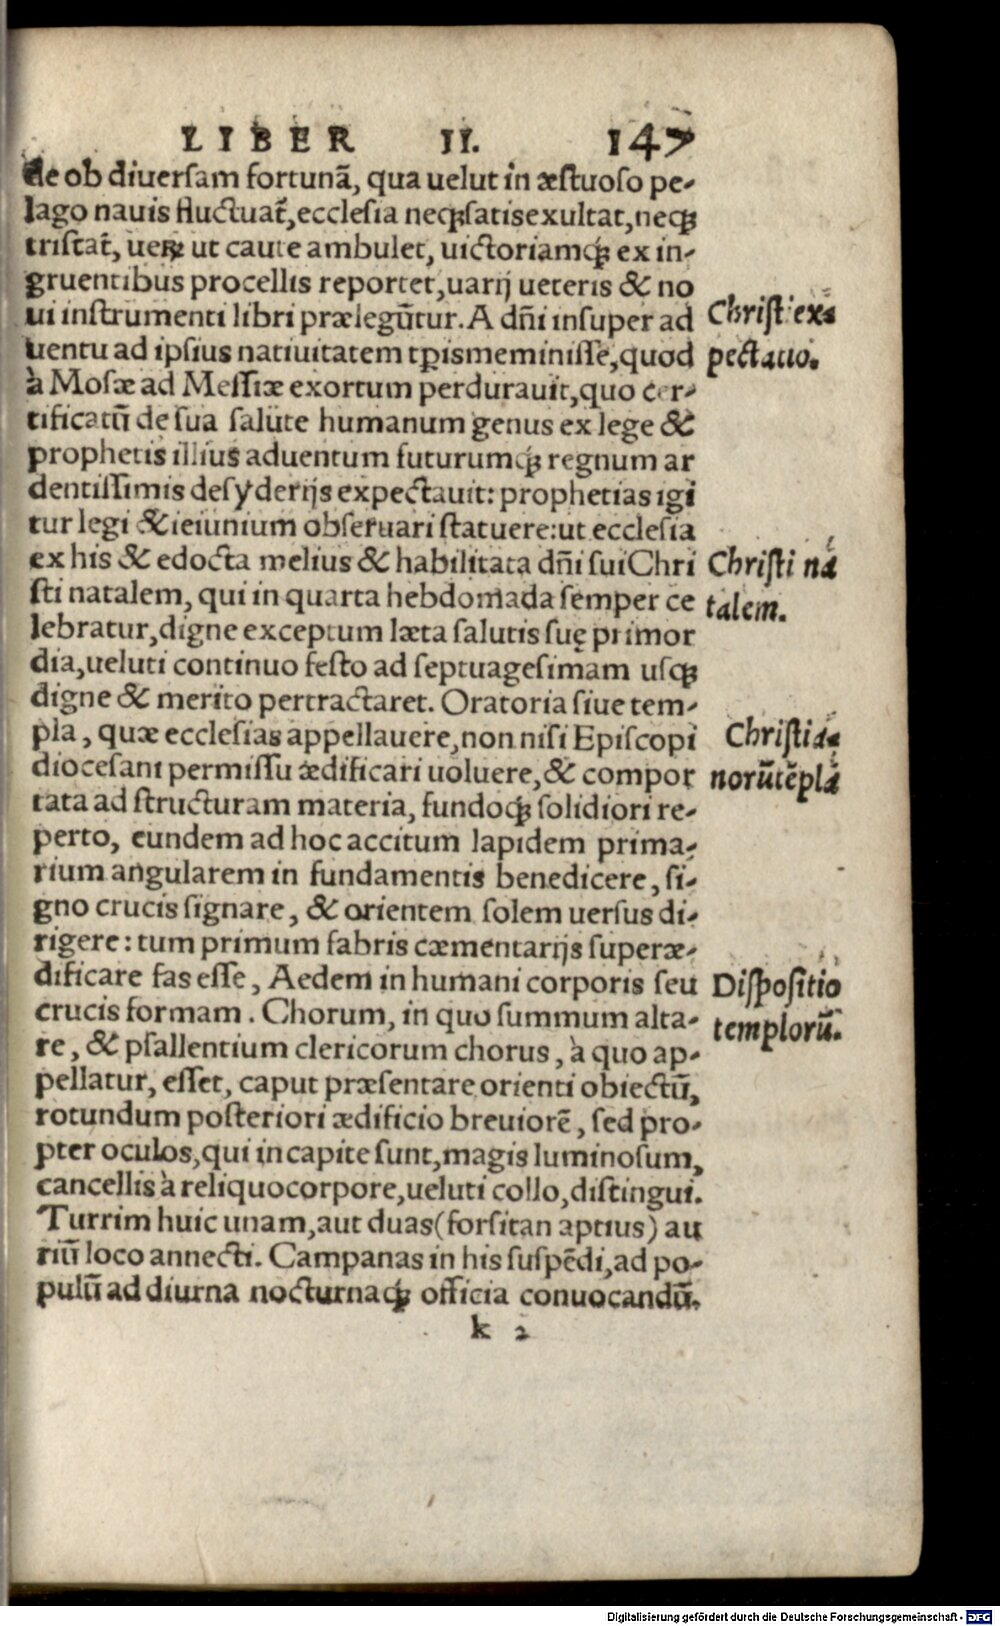 LIBER II. 147
de ob diuersam fortunã, qua uelut in æstuoso pe-
lago nauis fluctuat̃, ecclesia neqꝫ satis exultat, neqꝫ
tristat̃, uerꝫ ut caute ambulet, uictoriamqꝫ́ ex in-
gruentibus procellis reportet, uarij ueteris & no
ui instrumenti libri prælegũtur. A dñi insuper ad
uentu ad ipsius natiuitatem tp̃is meminisse, quod
à Mosæ ad Messiæ exortum perdurauit, quo cer-
tificatũ de sua salute humanum genus ex lege &
prophetis illius aduentum futurumqꝫ́ regnum ar
dentissimis desyderijs expectauit: prophetias igi
tur legi & ieiunium obseruari statuere: ut ecclesia
ex his & edocta melius & habilitata dñi sui Chri
sti natalem, qui in quarta hebdomada semper ce
lebratur, digne exceptum læta salutis suę primor
dia, ueluti continuo festo ad septuagesimam usqꝫ
digne & merito pertractaret. Oratoria siue tem-
pla, quæ ecclesias appellauere, non nisi Episcopi
diocesani permissu ædificari uoluere, & compor
tata ad structuram materia, fundoqꝫ́ solidiori re-
perto, eundem ad hoc accitum lapidem prima-
rium angularem in fundamentis benedicere, si-
gno crucis signare, & orientem solem uersus di-
rigere: tum primum fabris cæmentarijs superæ-
dificare fas esse, Aedem in humani corporis seu
crucis formam. Chorum, in quo summum alta-
re, & psallentium clericorum chorus, à quo ap-
pellatur, esset, caput præsentare orienti obiectũ,
rotundum posteriori ædificio breuiorẽ, sed pro-
pter oculos, qui in capite sunt, magis luminosum,
cancellis à reliquo corpore, ueluti collo, distingui.
Turrim huic unam, aut duas (forsitan aptius) au
riũ loco annecti. Campanas in his suspẽdi, ad po-
pulũ ad diurna nocturnaqꝫ́ officia conuocandũ.
k 2
Christi ex-
pectatio.
Christi na
talem.
Christia-
norũ tẽpla
Dispositio
templorũ.
Digitalisierung gefördert durch die Deutsche Forschungsgemeinschaft - DFG